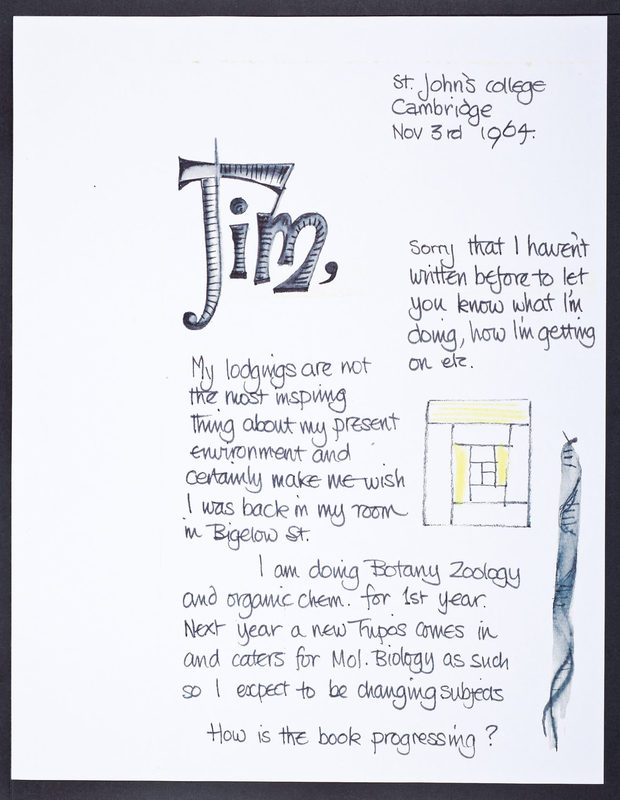 St. John's college
Cambridge
Nov 3rd 1964.
Jim,
Sorry that I haven't
written before to let
you know what I'm
doing, how I'm getting
on etc.
My lodgings are not
the most inspiring
thing about my present
environment and
certainly make me wish
I was back in my room
in Bigelow St.
I am doing Botany Zoology
and organic chem. for 1st year.
Next year a new Tripos comes in
and caters for Mol. Biology as such
so I expect to be changing subjects
How is the book progressing ?